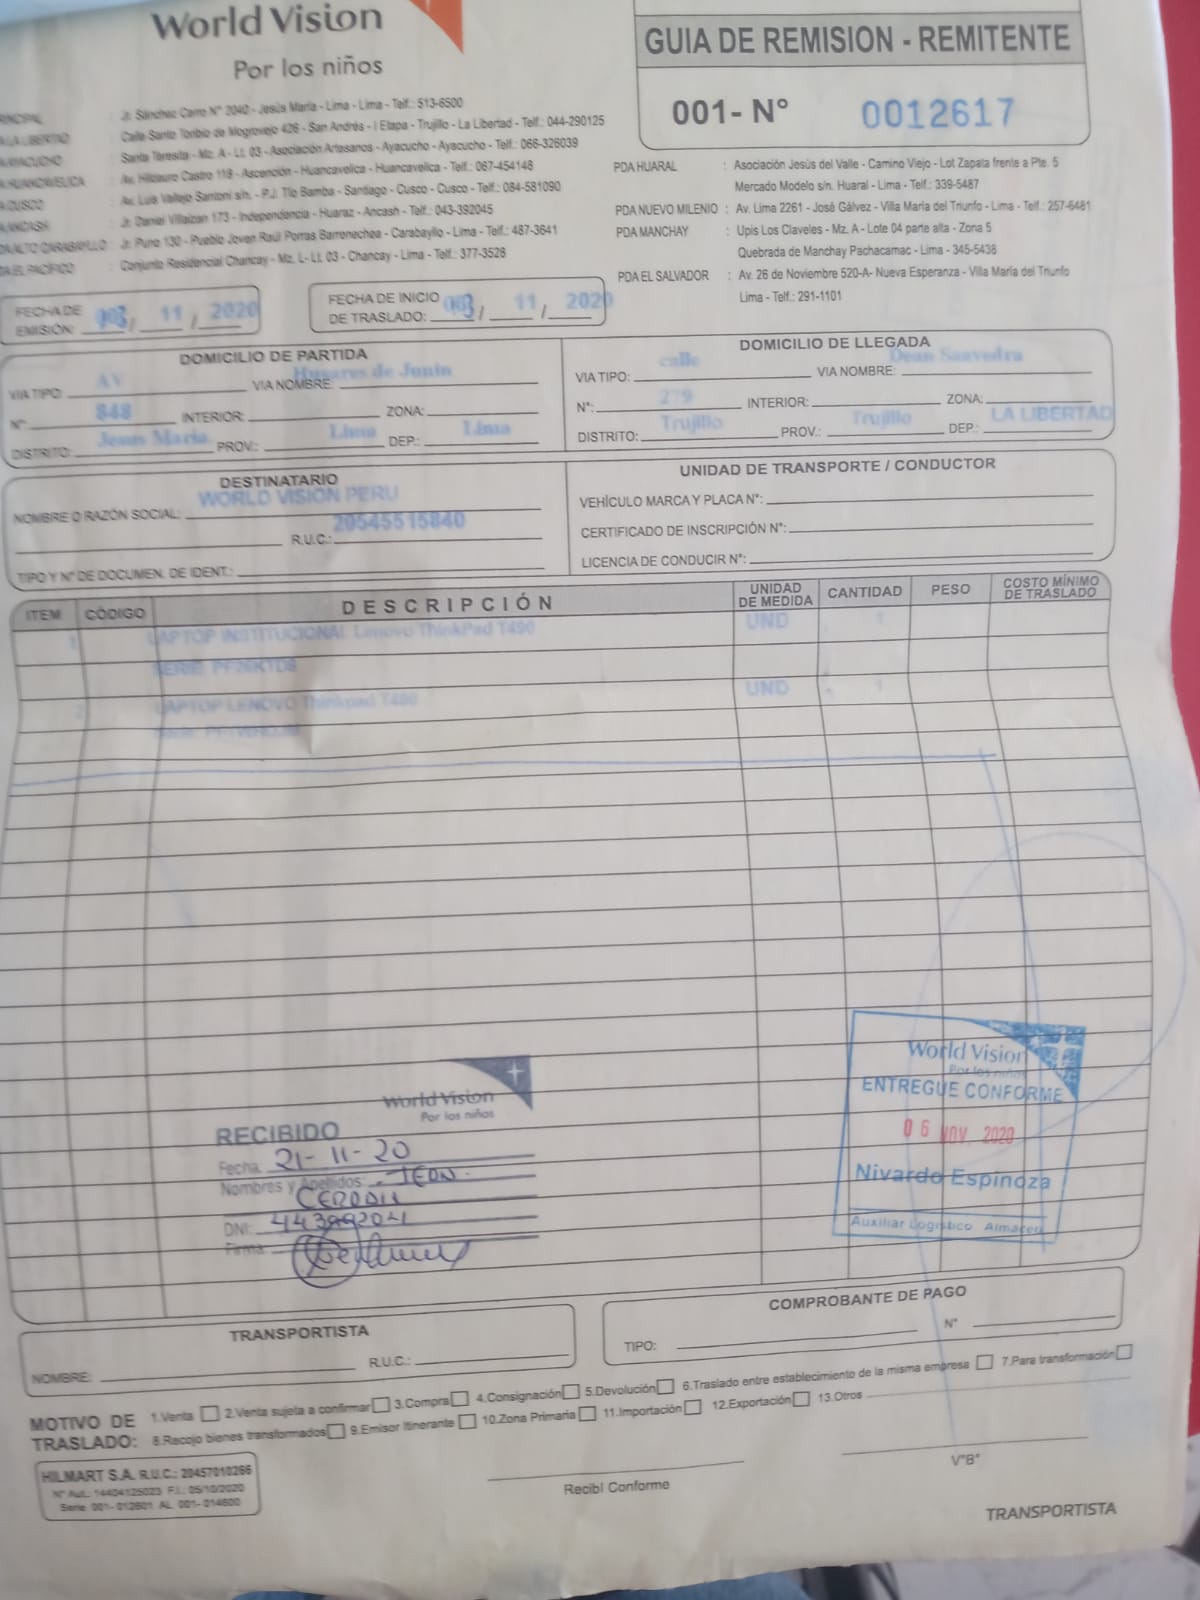 World Vision
Por los niños
GUIA DE REMISION - REMITENTE
001- N° 0012617
Jr. Sánchez Cerro N° 2040 - Jesús María - Lima - Lima - Telf.: 513-6500
LA LIBERTAD : Calle Santo Toribio de Mogrovejo 426 - San Andrés - I Etapa - Trujillo - La Libertad - Telf.: 044-290125
AYACUCHO : Santa Teresita - Mz. A - Lt. 03 - Asociación Artesanos - Ayacucho - Ayacucho - Telf.: 066-326039
HUANCAVELICA : Av. Hildauro Castro 118 - Ascención - Huancavelica - Huancavelica - Telf.: 067-454148
CUSCO : Av. Luis Vallejo Santoni s/n. - P.J. Tío Bamba - Santiago - Cusco - Cusco - Telf.: 084-581090
ANCASH : Jr. Daniel Villaizan 173 - Independencia - Huaraz - Ancash - Telf.: 043-392045
ALTO CARABAYLLO : Jr. Puno 130 - Pueblo Joven Raúl Porras Barrenechea - Carabayllo - Lima - Telf.: 487-3641
EL PACÍFICO : Conjunto Residencial Chancay - Mz. L- Lt. 03 - Chancay - Lima - Telf.: 377-3526
PDA HUARAL : Asociación Jesús del Valle - Camino Viejo - Lot Zapata frente a Pte. 5
Mercado Modelo s/n. Huaral - Lima - Telf.: 339-5487
PDA NUEVO MILENIO : Av. Lima 2261 - José Gálvez - Villa María del Triunfo - Lima - Telf.: 257-6481
PDA MANCHAY : Upis Los Claveles - Mz. A - Lote 04 parte alta - Zona 5
Quebrada de Manchay Pachacamac - Lima - 345-5438
PDA EL SALVADOR : Av. 26 de Noviembre 520-A- Nueva Esperanza - Villa María del Triunfo
Lima - Telf.: 291-1101
FECHA DE EMISIÓN: / 11 / 2020
FECHA DE INICIO DE TRASLADO: / 11 / 2020
DOMICILIO DE PARTIDA
VIA TIPO: AV VIA NOMBRE: Husares de Junin
N°: 848 INTERIOR: ZONA:
DISTRITO: Jesus Maria PROV.: Lima DEP.: Lima
DOMICILIO DE LLEGADA
VIA TIPO: calle VIA NOMBRE: Dean Saavedra
N°: 279 INTERIOR: ZONA:
DISTRITO: Trujillo PROV.: Trujillo DEP.: LA LIBERTAD
DESTINATARIO
NOMBRE O RAZÓN SOCIAL: WORLD VISION PERU
R.U.C.: 20545515840
TIPO Y N° DE DOCUMEN. DE IDENT.:
UNIDAD DE TRANSPORTE / CONDUCTOR
VEHÍCULO MARCA Y PLACA N°:
CERTIFICADO DE INSCRIPCIÓN N°:
LICENCIA DE CONDUCIR N°:
ITEM CÓDIGO DESCRIPCIÓN UNIDAD DE MEDIDA CANTIDAD PESO COSTO MÍNIMO DE TRASLADO
1 LAPTOP INSTITUCIONAL Lenovo ThinkPad T490 UND 1
SERIE:
2 LAPTOP LENOVO Thinkpad T480 UND 1
Serie:
World Vision
Por los niños
RECIBIDO
Fecha: 21-11-20
Nombres y Apellidos:
DNI:
Firma:
World Vision
Por los niños
ENTREGUE CONFORME
06 NOV. 2020
Nivardo Espinoza
Auxiliar Logístico Almacen
TRANSPORTISTA
NOMBRE: R.U.C.:
COMPROBANTE DE PAGO
TIPO: N°
MOTIVO DE TRASLADO:
1.Venta 2.Venta sujeta a confirmar 3.Compra 4.Consignación 5.Devolución 6.Traslado entre establecimiento de la misma empresa 7.Para transformación
8.Recojo bienes transformados 9.Emisor Itinerante 10.Zona Primaria 11.Importación 12.Exportación 13.Otros
HILMART S.A. R.U.C.: 20457010266
N° Aut.: 14404125023 F.I.: 05/10/2020
Serie 001- 012601 AL 001- 014600
Recibí Conforme
V°B°
TRANSPORTISTA